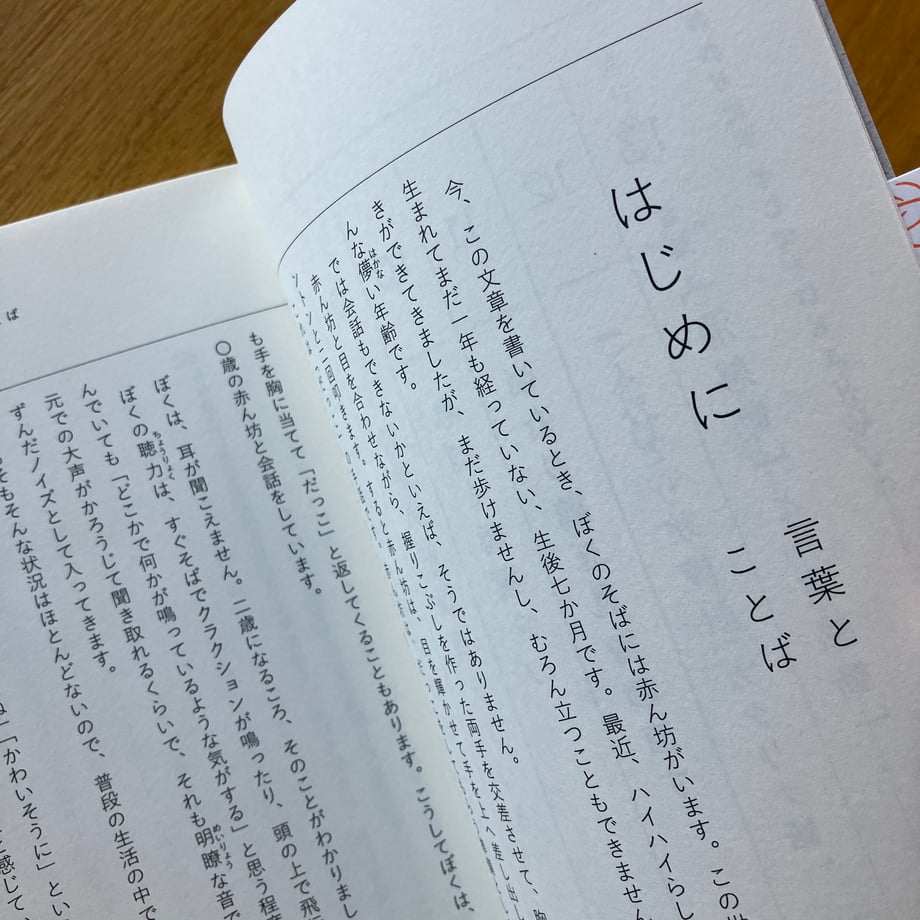 はじめに
言葉と
ことば
今、この文章を書いているとき、ぼくのそばには赤ん坊がいます。この
生まれてまだ一年も経っていない、生後七か月です。最近、ハイハイらし
きができてきましたが、まだ歩けませんし、むろん立つこともできません
んな儚い年齢です。
はかな
では会話もできないかといえば、そうではありません。
赤ん坊と目を合わせながら、握りこぶしを作った両手を交差させて、胸
ントントンと二回叩きます。すると赤ん坊は、目を輝かせて手を上へ差し出
も手を胸に当てて「だっこ」と返してくることもあります。こうしてぼくは、
〇歳の赤ん坊と会話をしています。
ぼくは、耳が聞こえません。二歳になるころ、そのことがわかりまし
ぼくの聴力は、すぐそばでクラクションが鳴ったり、頭の上で飛
ちょうりょく
んでいても「どこかで何かが鳴っているような気がする」と思う程
元での大声がかろうじて聞き取れるくらいで、それも明瞭な音で
めいりょう
ずんだノイズとして入ってきます。
そもそんな状況はほとんどないので、普段の生活の中で
「かわいそうに」とい
と感じて、
ば